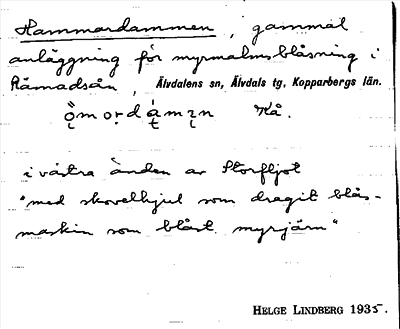 Hammardammen, gammal
anläggning för myrmalmsblåsning i
Råmadsån, Älvdalens sn, Älvdals tg, Kopparbergs län.
Kå.
i västra änden av Storfljot
"med skovelhjul som dragit blås-
maskin som blåst myrjärn"
HELGE LINDBERG 1935.